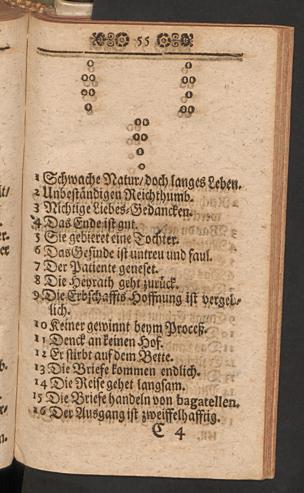 55
1 Schwache Natur/ doch langes Leben.
2 Unbeständigen Reichthumb.
3 Nichtige Liebes-Gedancken.
4 Das Ende ist gut.
5 Sie gebieret eine Tochter.
6 Das Gesinde ist untreu und faul.
7 Der Patiente geneset.
8 Die Heyrath geht zurück.
9 Die Erbschaffts-Hoffnung ist vergeb-
lich.
10 Keiner gewinnt beym Proceß.
11 Denck an keinen Hof.
12 Er stirbt auf dem Bette.
13 Die Briefe kommen endlich.
14 Die Reise gehet langsam.
15 Die Briefe handeln von bagatellen.
16 Der Ausgang ist zweiffelhafftig.
C 4